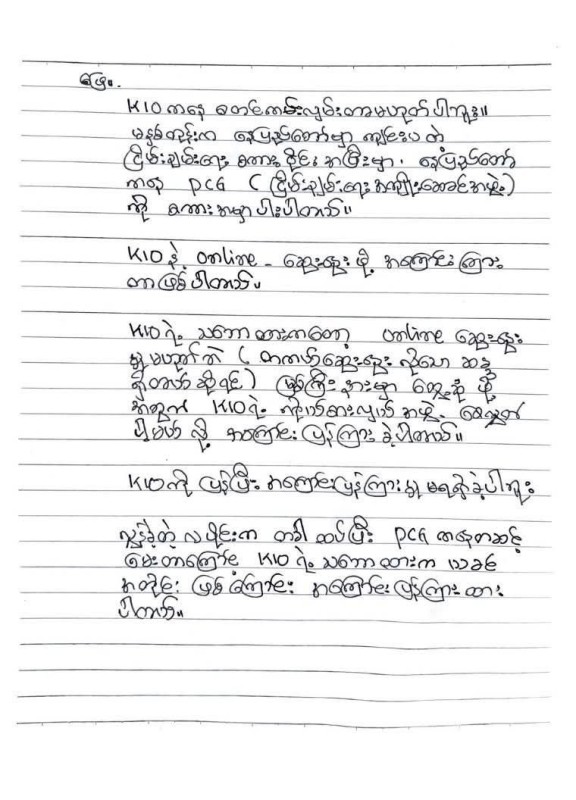 ဖြေ။
KIO ကနေ စတင်ကမ်းလှမ်းတာမဟုတ်ပါဘူး။
မနှစ်တုန်းက နေပြည်တော်မှာ ကျင်းပတဲ့
ငြိမ်းချမ်းရေး စကားဝိုင်း အပြီးမှာ၊ နေပြည်တော်
ကနေ PCG ( ငြိမ်းချမ်းရေး အကျိုးဆောင်အဖွဲ့ )
ကို စကားအမှာပါးပါတယ်။
KIO နဲ့ online - ဆွေးနွေးဖို့ အကြောင်းကြား
တာဖြစ်ပါတယ်။
KIO ရဲ့ သဘောထားကတော့ online ဆွေးနွေး
မှု မဟုတ်ဘဲ ( တကယ်ဆွေးနွေး လိုသော ဆန္ဒ
ရှိတယ် ဆိုရင် ) မြစ်ကြီးနားမှာ တွေ့ဆုံ ဖို့
အတွက် KIO ရဲ့ ကိုယ်စားလှယ် အဖွဲ့ စေလွှတ်
ပါ့မယ် လို့ အကြောင်းပြန်ကြား ခဲ့ပါတယ်။
KIO ကို ပြန်ပြီး အကြောင်းပြန်ကြားမှု မရရှိခဲ့ပါဘူး
လွန်ခဲ့တဲ့ လပိုင်းက တခါ ထပ်ပြီး PCG ကနေတဆင့်
မေးတာကြောင့် KIO ရဲ့ သဘောထားက ယခင်
အတိုင်း ဖြစ်ကြောင်း အကြောင်းပြန်ကြားထား
ပါတယ်။